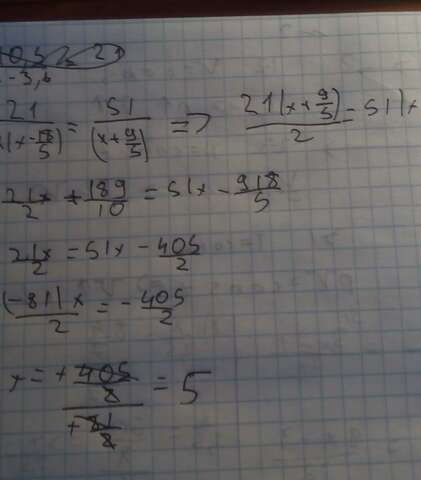 -3,6
21/(x-18/5) = 51/(x+9/5) => 21(x+9/5)/2 = 51(x
21x/2 + 189/10 = 51x - 918/5
21x/2 = 51x - 405/2
(-81)x/2 = - 405/2
x = +405/2 / +81/2 = 5